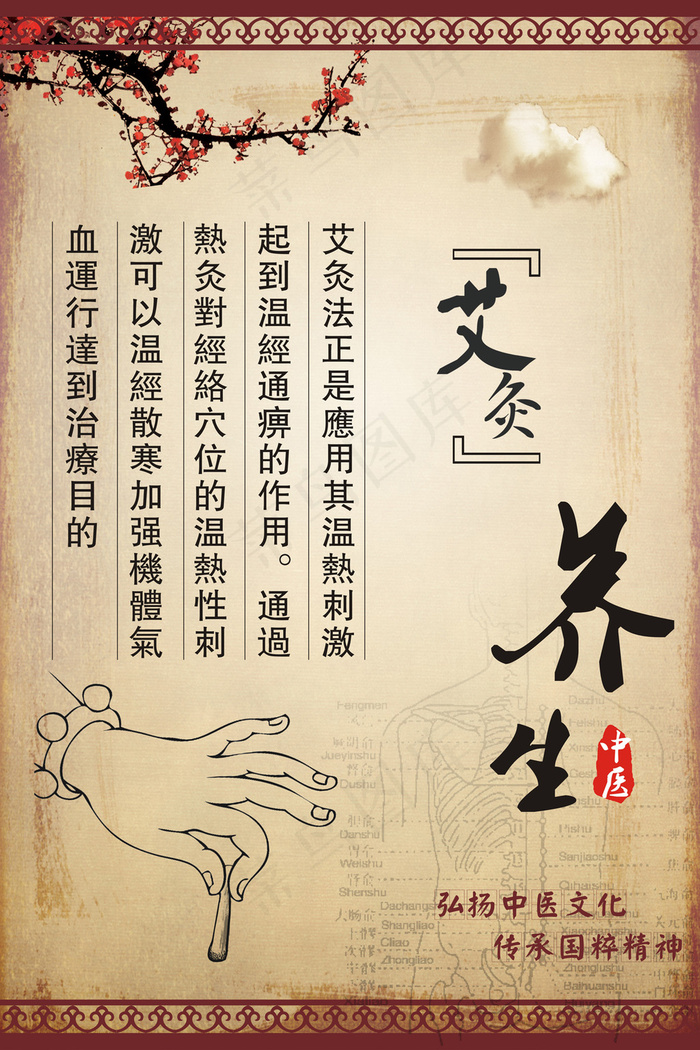 『艾灸』
养生
中医
艾灸法正是應用其温熱刺激
起到温經通痹的作用。通過
熱灸對經絡穴位的温熱性刺
激可以温經散寒加强機體氣
血運行達到治療目的
Fengmen
Jueyinshu
Dushu
Danshu
Weishu
Shenshu
Dachangshu
Shangliao
Ciliao
Zhongliao
Dazhu
Pishu
Sanjiaoshu
Qihaishu
Zhonglushu
Baihuanshu
弘扬中医文化
传承国粹精神